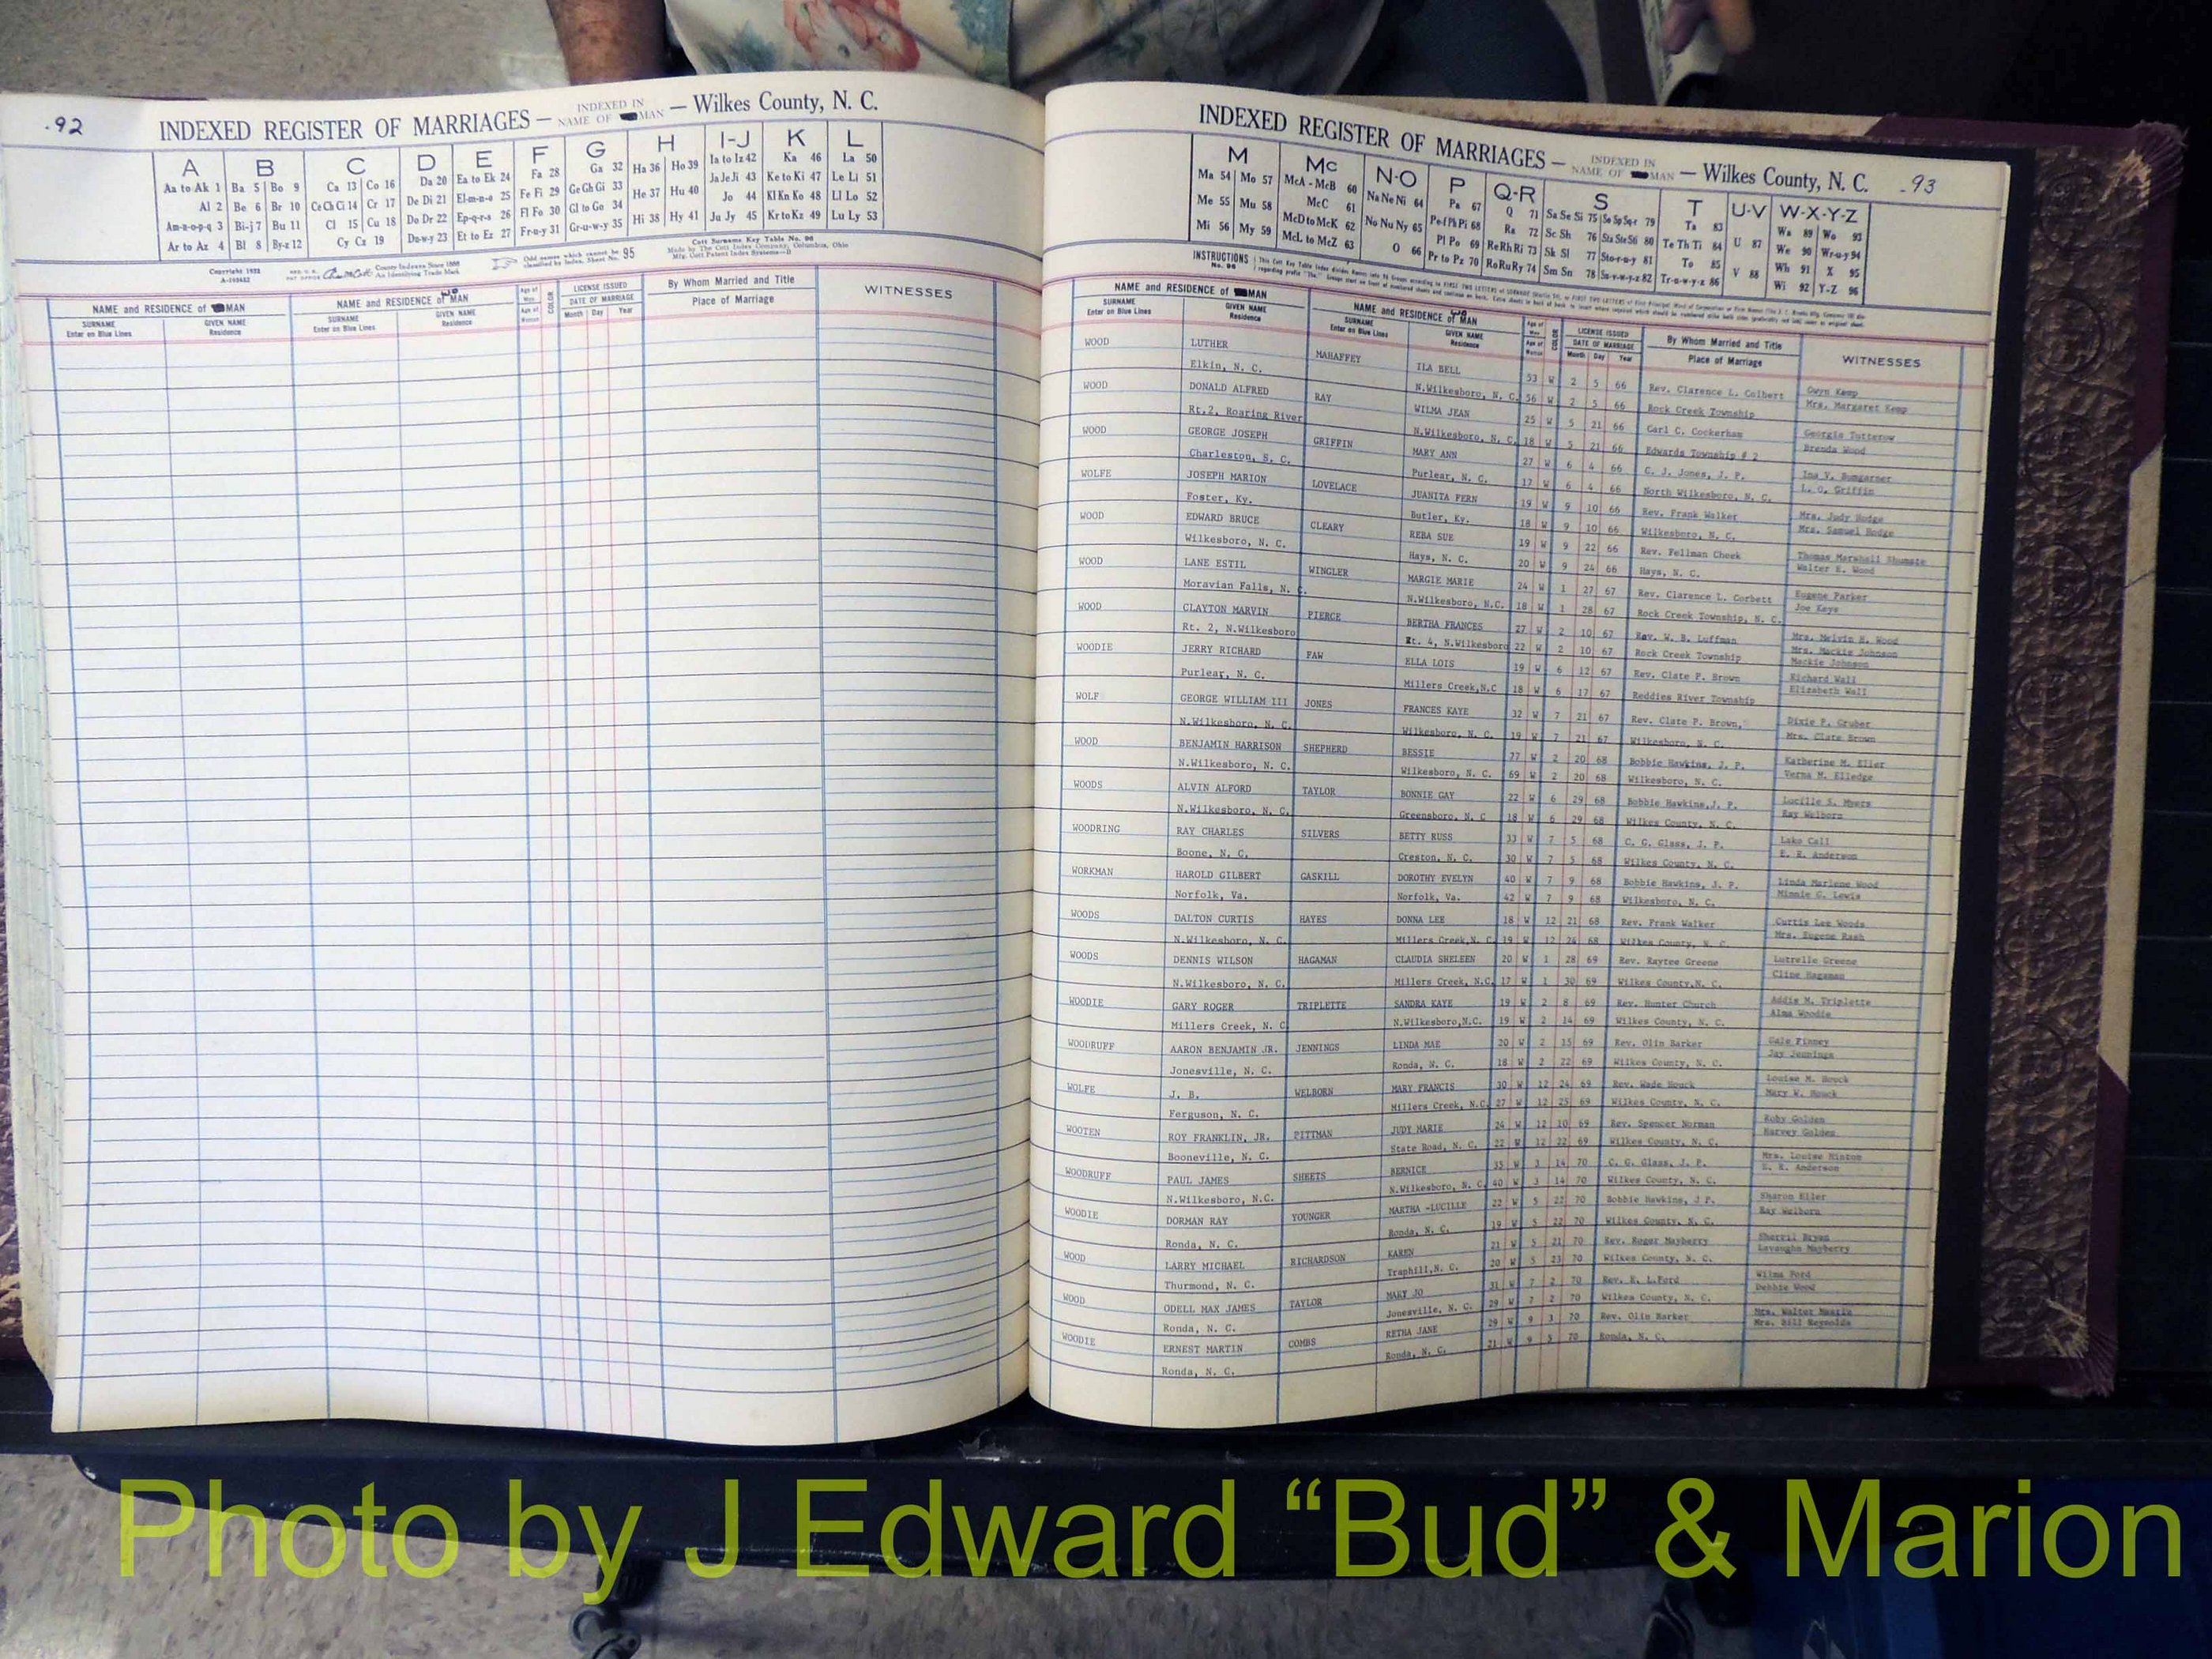 .92
INDEXED REGISTER OF MARRIAGES — INDEXED IN NAME OF MAN — Wilkes County, N. C.
A B C D E F G H I-J K L
Aa to Ak 1 Ba 5 Bo 9 Ca 13 Co 16 Da 20 Ea to Ek 24 Fa 28 Ga 32 Ha 36 Ho 39 Ia to Iz 42 Ka 46 La 50
Al 2 Be 6 Br 10 Ce Ch Ci 14 Cr 17 De Di 21 El-m-n-o 25 Fe Fi 29 Ge Gh Gi 33 He 37 Hu 40 Ja Je Ji 43 Ke to Ki 47 Le Li 51
Am-n-o-p-q 3 Bi-j 7 Bu 11 Cl 15 Cu 18 Do Dr 22 Ep-q-r-s 26 Fl Fo 30 Gl to Go 34 Hi 38 Hy 41 Jo 44 Kl Kn Ko 48 Ll Lo 52
Ar to Az 4 Bl 8 By-z 12 Cy Cz 19 Du-w-y 23 Et to Ez 27 Fr-u-y 31 Gr-u-w-y 35 Ju Jy 45 Kr to Kz 49 Lu Ly 53
Copyright 1922
County Indexes Since 1888
An Identifying Trade Mark
Odd names which cannot be classified by Index. Sheet No. 95
Cott Surname Key Table No. 96
Made by The Cott Index Company, Columbus, Ohio
NAME and RESIDENCE of MAN
SURNAME Enter on Blue Lines
GIVEN NAME Residence
NAME and RESIDENCE of WOMAN
SURNAME Enter on Blue Lines
GIVEN NAME Residence
Age of Man
Age of Woman
COLOR
LICENSE ISSUED
DATE OF MARRIAGE
Month Day Year
By Whom Married and Title
Place of Marriage
WITNESSES
INDEXED REGISTER OF MARRIAGES — INDEXED IN NAME OF MAN — Wilkes County, N. C. .93
M Mc N-O P Q-R S T U-V W-X-Y-Z
Ma 54 Mo 57 McA - McB 60 Na Ne Ni 64 Pa 67 Q 71 Sa Se Si 75 So Sp Sq-r 79 Ta 83 U 87 Wa 89 Wo 93
Me 55 Mu 58 McC 61 No Nu Ny 65 Pe-f Ph Pi 68 Ra 72 Sc Sh 76 Sta Ste Sti 80 Te Th Ti 84 V 88 We 90 Wr-u-y 94
Mi 56 My 59 McD to McK 62 O 66 Pl Po 69 Re Rh Ri 73 Sk Sl 77 Sto-r-u-y 81 To 85 Wh 91 X 95
McL to McZ 63 Pr to Pz 70 Ro Ru Ry 74 Sm Sn 78 Su-v-w-y-z 82 Tr-u-w-y-z 86 Wi 92 Y-Z 96
INSTRUCTIONS
NAME and RESIDENCE of MAN
SURNAME Enter on Blue Lines
GIVEN NAME Residence
NAME and RESIDENCE of WOMAN
SURNAME Enter on Blue Lines
GIVEN NAME Residence
Age of Man
Age of Woman
COLOR
LICENSE ISSUED
DATE OF MARRIAGE
Month Day Year
By Whom Married and Title
Place of Marriage
WITNESSES
WOOD LUTHER MAHAFFEY ILA BELL 53 W 2 5 66 Rev. Clarence L. Colbert Gwyn Kemp
Elkin, N. C. N.Wilkesboro, N. C. 56 W 2 5 66 Rock Creek Township Mrs. Margaret Kemp
WOOD DONALD ALFRED RAY WILMA JEAN 25 W 5 21 66 Carl C. Cockerham Georgia Tutterow
Rt.2, Roaring River N.Wilkesboro, N. C. 18 W 5 21 66 Edwards Township # 2 Brenda Wood
WOOD GEORGE JOSEPH GRIFFIN MARY ANN 27 W 6 4 66 C. J. Jones, J. P. Ina V. Bumgarner
Charleston, S. C. Purlear, N. C. 17 W 6 4 66 North Wilkesboro, N. C. L. G. Griffin
WOLFE JOSEPH MARION LOVELACE JUANITA FERN 19 W 9 10 66 Rev. Frank Walker Mrs. Judy Hodge
Foster, Ky. Butler, Ky. 18 W 9 10 66 Wilkesboro, N. C. Mrs. Samuel Hodge
WOOD EDWARD BRUCE CLEARY REBA SUE 19 W 9 22 66 Rev. Fellman Cheek Thomas Marshall Shumate
Wilkesboro, N. C. Hays, N. C. 20 W 9 24 66 Hays, N. C. Walter E. Wood
WOOD LANE ESTIL WINGLER MARGIE MARIE 24 W 1 27 67 Rev. Clarence L. Corbett Eugene Parker
Moravian Falls, N. C. N.Wilkesboro, N.C. 18 W 1 28 67 Rock Creek Township, N. C. Joe Keys
WOOD CLAYTON MARVIN PIERCE BERTHA FRANCES 27 W 2 10 67 Rev. W. B. Luffman Mrs. Melvin H. Wood
Rt. 2, N.Wilkesboro Rt. 4, N.Wilkesboro 22 W 2 10 67 Rock Creek Township Mrs. Mackie Johnson
Mackie Johnson
WOODIE JERRY RICHARD FAW ELLA LOIS 19 W 6 12 67 Rev. Clate P. Brown Richard Wall
Purlear, N. C. Millers Creek,N.C 18 W 6 17 67 Reddies River Township Elizabeth Wall
WOLF GEORGE WILLIAM III JONES FRANCES KAYE 32 W 7 21 67 Rev. Clate P. Brown, Dixie P. Gruber
N.Wilkesboro, N. C. Wilkesboro, N. C. 19 W 7 21 67 Wilkesboro, N. C. Mrs. Clate Brown
WOOD BENJAMIN HARRISON SHEPHERD BESSIE 77 W 2 20 68 Bobbie Hawkins, J. P. Katherine M. Eller
N.Wilkesboro, N. C. Wilkesboro, N. C. 69 W 2 20 68 Wilkesboro, N. C. Verna M. Elledge
WOODS ALVIN ALFORD TAYLOR BONNIE GAY 22 W 6 29 68 Bobbie Hawkins,J. P. Lucille S. Myers
N.Wilkesboro, N. C. Greensboro, N. C 18 W 6 29 68 Wilkes County, N. C. Ray Welborn
WOODRING RAY CHARLES SILVERS BETTY RUSS 33 W 7 5 68 C. G. Glass, J. P. Lake Call
Boone, N. C. Creston, N. C. 30 W 7 5 68 Wilkes County, N. C. E. R. Anderson
WORKMAN HAROLD GILBERT GASKILL DOROTHY EVELYN 40 W 7 9 68 Bobbie Hawkins, J. P. Linda Marlene Wood
Norfolk, Va. Norfolk, Va. 42 W 7 9 68 Wilkesboro, N. C. Minnie G. Lewis
WOODS DALTON CURTIS HAYES DONNA LEE 18 W 12 21 68 Rev. Frank Walker Curtis Lee Woods
N.Wilkesboro, N. C. Millers Creek,N. C. 19 W 12 24 68 Wilkes County, N. C. Mrs. Eugene Rash
WOODS DENNIS WILSON HAGAMAN CLAUDIA SHELEEN 20 W 1 28 69 Rev. Raytee Greene Lutrelle Greene
N.Wilkesboro, N. C. Millers Creek, N.C. 17 W 1 30 69 Wilkes County,N. C. Cline Hagaman
WOODIE GARY ROGER TRIPLETTE SANDRA KAYE 19 W 2 8 69 Rev. Hunter Church Addie M. Triplette
Millers Creek, N. C N.Wilkesboro,N.C. 19 W 2 14 69 Wilkes County, N. C. Alma Woodie
WOODRUFF AARON BENJAMIN JR. JENNINGS LINDA MAE 20 W 2 15 69 Rev. Olin Barker Gale Finney
Jonesville, N. C. Ronda, N. C. 18 W 2 22 69 Wilkes County, N. C. Jay Jennings
WOLFE J. B. WELBORN MARY FRANCIS 30 W 12 24 69 Rev. Wade Houck Louise M. Houck
Ferguson, N. C. Millers Creek, N.C. 27 W 12 25 69 Wilkes County, N. C. Mary W. Houck
WOOTEN ROY FRANKLIN, JR. PITTMAN JUDY MARIE 24 W 12 10 69 Rev. Spencer Norman Roby Golden
Booneville, N. C. State Road, N. C. 22 W 12 22 69 Wilkes County, N. C. Harvey Golden
WOODRUFF PAUL JAMES SHEETS BERNICE 35 W 3 14 70 C. G. Glass, J. P. Mrs. Louise Hinton
N.Wilkesboro, N.C. N.Wilkesboro, N. C. 40 W 3 14 70 Wilkes County, N. C. E. R. Anderson
WOODIE DORMAN RAY YOUNGER MARTHA -LUCILLE 22 W 5 22 70 Bobbie Hawkins, J P. Sharon Eller
Ronda, N. C. Ronda, N. C. 19 W 5 22 70 Wilkes County, N. C. Ray Welborn
WOOD LARRY MICHAEL RICHARDSON KAREN 21 W 5 21 70 Rev. Roger Mayberry Sherril Bryan
Thurmond, N. C. Traphill,N. C. 20 W 5 23 70 Wilkes County, N. C. Lavaughn Mayberry
WOOD ODELL MAX JAMES TAYLOR MARY JO 31 W 7 2 70 Rev. E. L.Ford Wilma Ford
Ronda, N. C. Jonesville, N. C. 29 W 7 2 70 Wilkes County, N. C. Debbie Wood
WOODIE ERNEST MARTIN COMBS RETHA JANE 29 W 9 3 70 Rev. Olin Barker Mrs. Walter Mastin
Ronda, N. C. Ronda, N. C. 21 W 9 5 70 Ronda, N. C. Mrs. Bill Reynolds
Photo by J Edward “Bud” & Marion